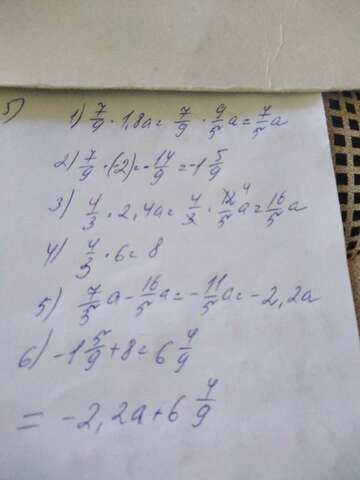 5)
1) 7/9 · 1,8a = 7/9 · 9/5 a = 7/5 a
2) 7/9 · (-2) = -14/9 = -1 5/9
3) 4/3 · 2,4a = 4/3 · 12/5 a 4 = 16/5 a
4) 4/3 · 6 = 8
5) 7/5 a - 16/5 a = - 11/5 a = -2,2a
6) -1 5/9 + 8 = 6 4/9
= -2,2a + 6 4/9